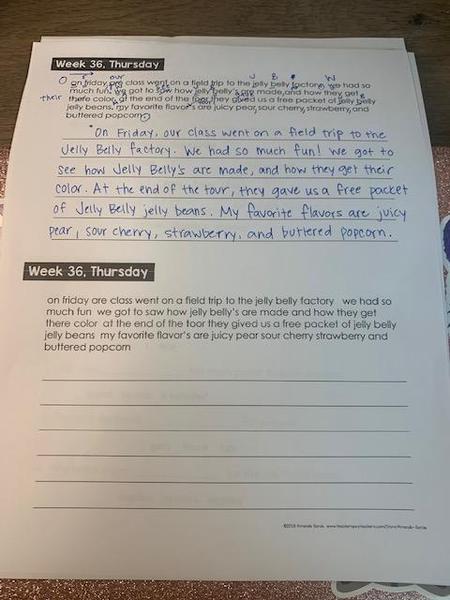 Week 36, Thursday
O our J B W
on friday are class went on a field trip to the jelly belly factory, we had so
much fun! we got to saw how jelly belly's are made, and how they get
their there color. at the end of the toor, they gived us a free packet of jelly belly
jelly beans. my favorite flavor's are juicy pear, sour cherry, strawberry, and
buttered popcorn.
On Friday, our class went on a field trip to the
Jelly Belly factory. We had so much fun! We got to
see how Jelly Belly's are made, and how they get their
color. At the end of the tour, they gave us a free packet
of Jelly Belly jelly beans. My favorite flavors are juicy
pear, sour cherry, strawberry, and buttered popcorn.
Week 36, Thursday
on friday are class went on a field trip to the jelly belly factory we had so
much fun we got to saw how jelly belly's are made and how they get
there color at the end of the toor they gived us a free packet of jelly belly
jelly beans my favorite flavor's are juicy pear sour cherry strawberry and
buttered popcorn